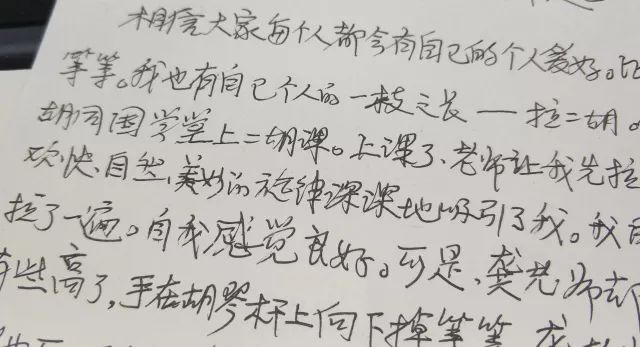 相信大家每个人都会有自己的个人爱好。比
等等。我也有自已个人的一技之长——拉二胡。
胡同国学堂上二胡课。上课了、老师让我先拉
欢快、自然、美妙的旋律深深地吸引了我。我自
拉了一遍。自我感觉良好。可是、龚老师却
有些高了，手在胡琴杆上向下掉等等